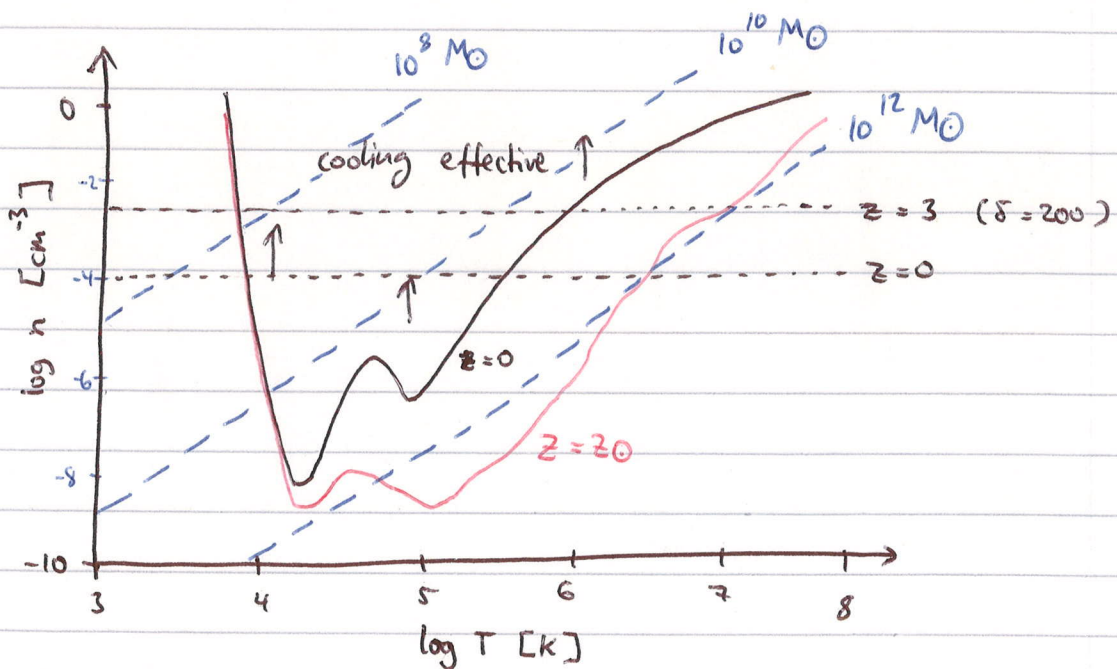 10⁸ M☉
10¹⁰ M☉
10¹² M☉
0
cooling effective
-2
z = 3 (δ = 200)
-4
z = 0
log n [cm⁻³]
z = 0
-6
z = z☉
-8
-10
3 4 5 6 7 8
log T [K]